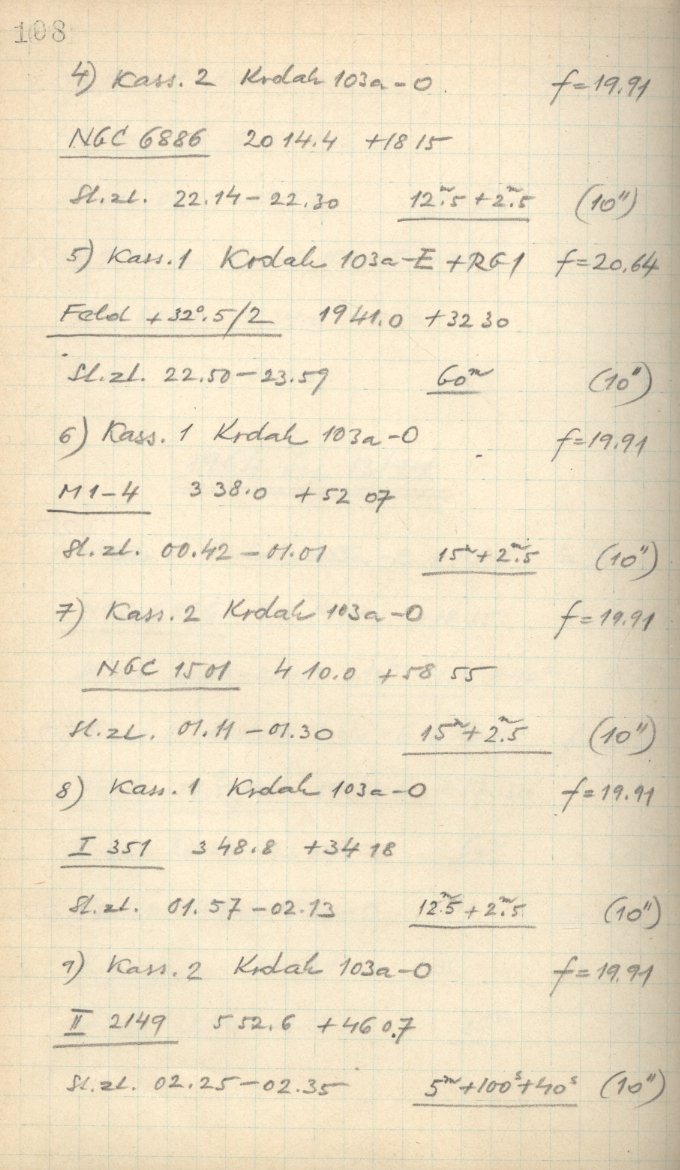 108
4) Kass. 2 Kodak 103a-O f=19.91
NGC 6886 20 14.4 +18 15
St.zt. 22.14-22.30 12ᵐ.5+2ᵐ.5 (10")
5) Kass. 1 Kodak 103a-E+RG1 f=20.64
Feld +32°.5/2 19 41.0 +32 30
St.zt. 22.50-23.59 60ᵐ (10")
6) Kass. 1 Kodak 103a-O f=19.91
M1-4 3 38.0 +52 07
St.zt. 00.42-01.01 15ᵐ+2ᵐ.5 (10")
7) Kass. 2 Kodak 103a-O f=19.91
NGC 1501 4 10.0 +58 55
St.zt. 01.11-01.30 15ᵐ+2ᵐ.5 (10")
8) Kass. 1 Kodak 103a-O f=19.91
I 351 3 48.8 +34 18
St.zt. 01.57-02.13 12ᵐ.5+2ᵐ.5 (10")
9) Kass. 2 Kodak 103a-O f=19.91
II 2149 5 52.6 +46 07
St.zt. 02.25-02.35 5ᵐ+100ˢ+40ˢ (10")